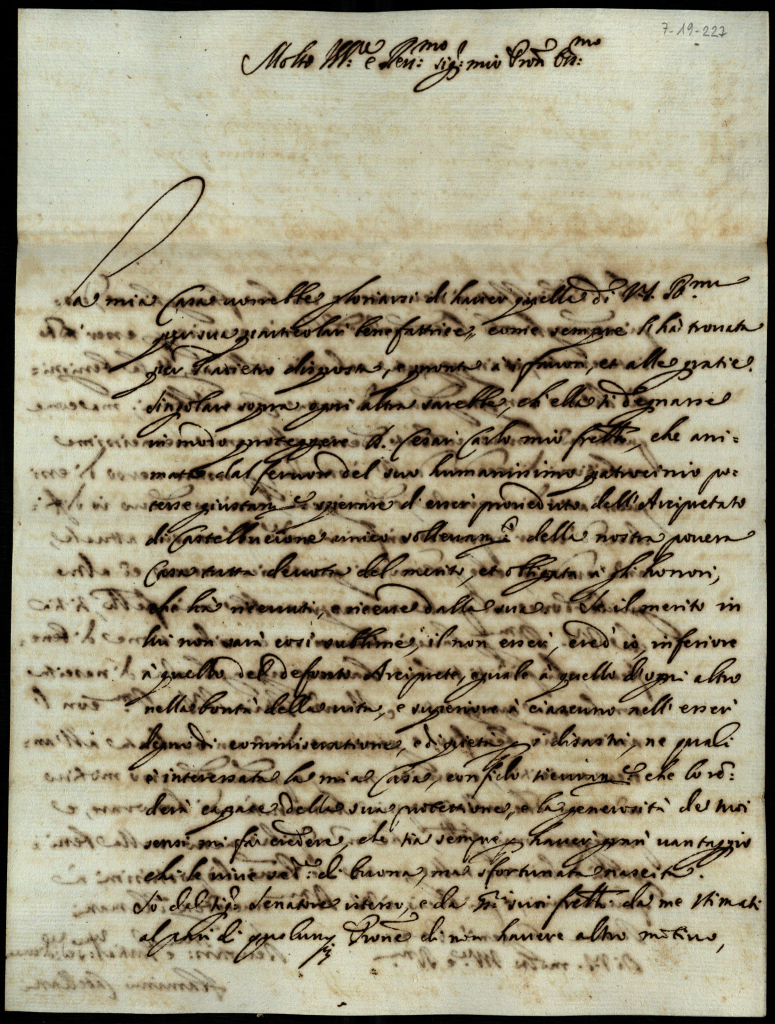 7-19-227
Molto Ill.re e Rev.mo sig.r mio Pron Col.mo
La mia Casa vorrebbe gloriarsi di haver quella di V.S. R.ma
per sua particolar benefattrice, come sempre l'ha trovata
per l'adietro disposta, e pronta a i favori, et alle gratie.
Singolare sopra ogni altra sarebbe, ch'ella si degnasse
in modo proteggere D. Cesar Carlo mio frello, che ani-
mato dal fervor del suo humanissimo patrocinio po-
tesse giustam.e sperare d'esser proveduto dell'Arcipretato
di Castelluccione unico sollevam.to della nostra povera
Casa tutta devota del merito, et obligata a gli honori,
che hà ricevuti, e riceve dalla sua. Se il merito in
lui non sarà così sublime, il non esser, cred'io, inferiore
à quello del defonto Arciprete, equale à quello d'ogni altro
nella bontà della vita, e superiore à ciascuno nell'esser
degno di commiseratione, e di pietà p i disastri, ne quali
è interessata la mia Casa, confido sicuram.e che lo ren-
derà capace della sua protettione, e la generosità de suoi
sensi mi fà credere, che sia sempre p haver gran vantaggio
chi le vive ser.e di buona, mà sfortunata nascita.
Sò dal sig.r Senatore istesso, e da SS.ri suoi frelli da me stimati
al pari di qualunq; Prone di non havere altro motivo,